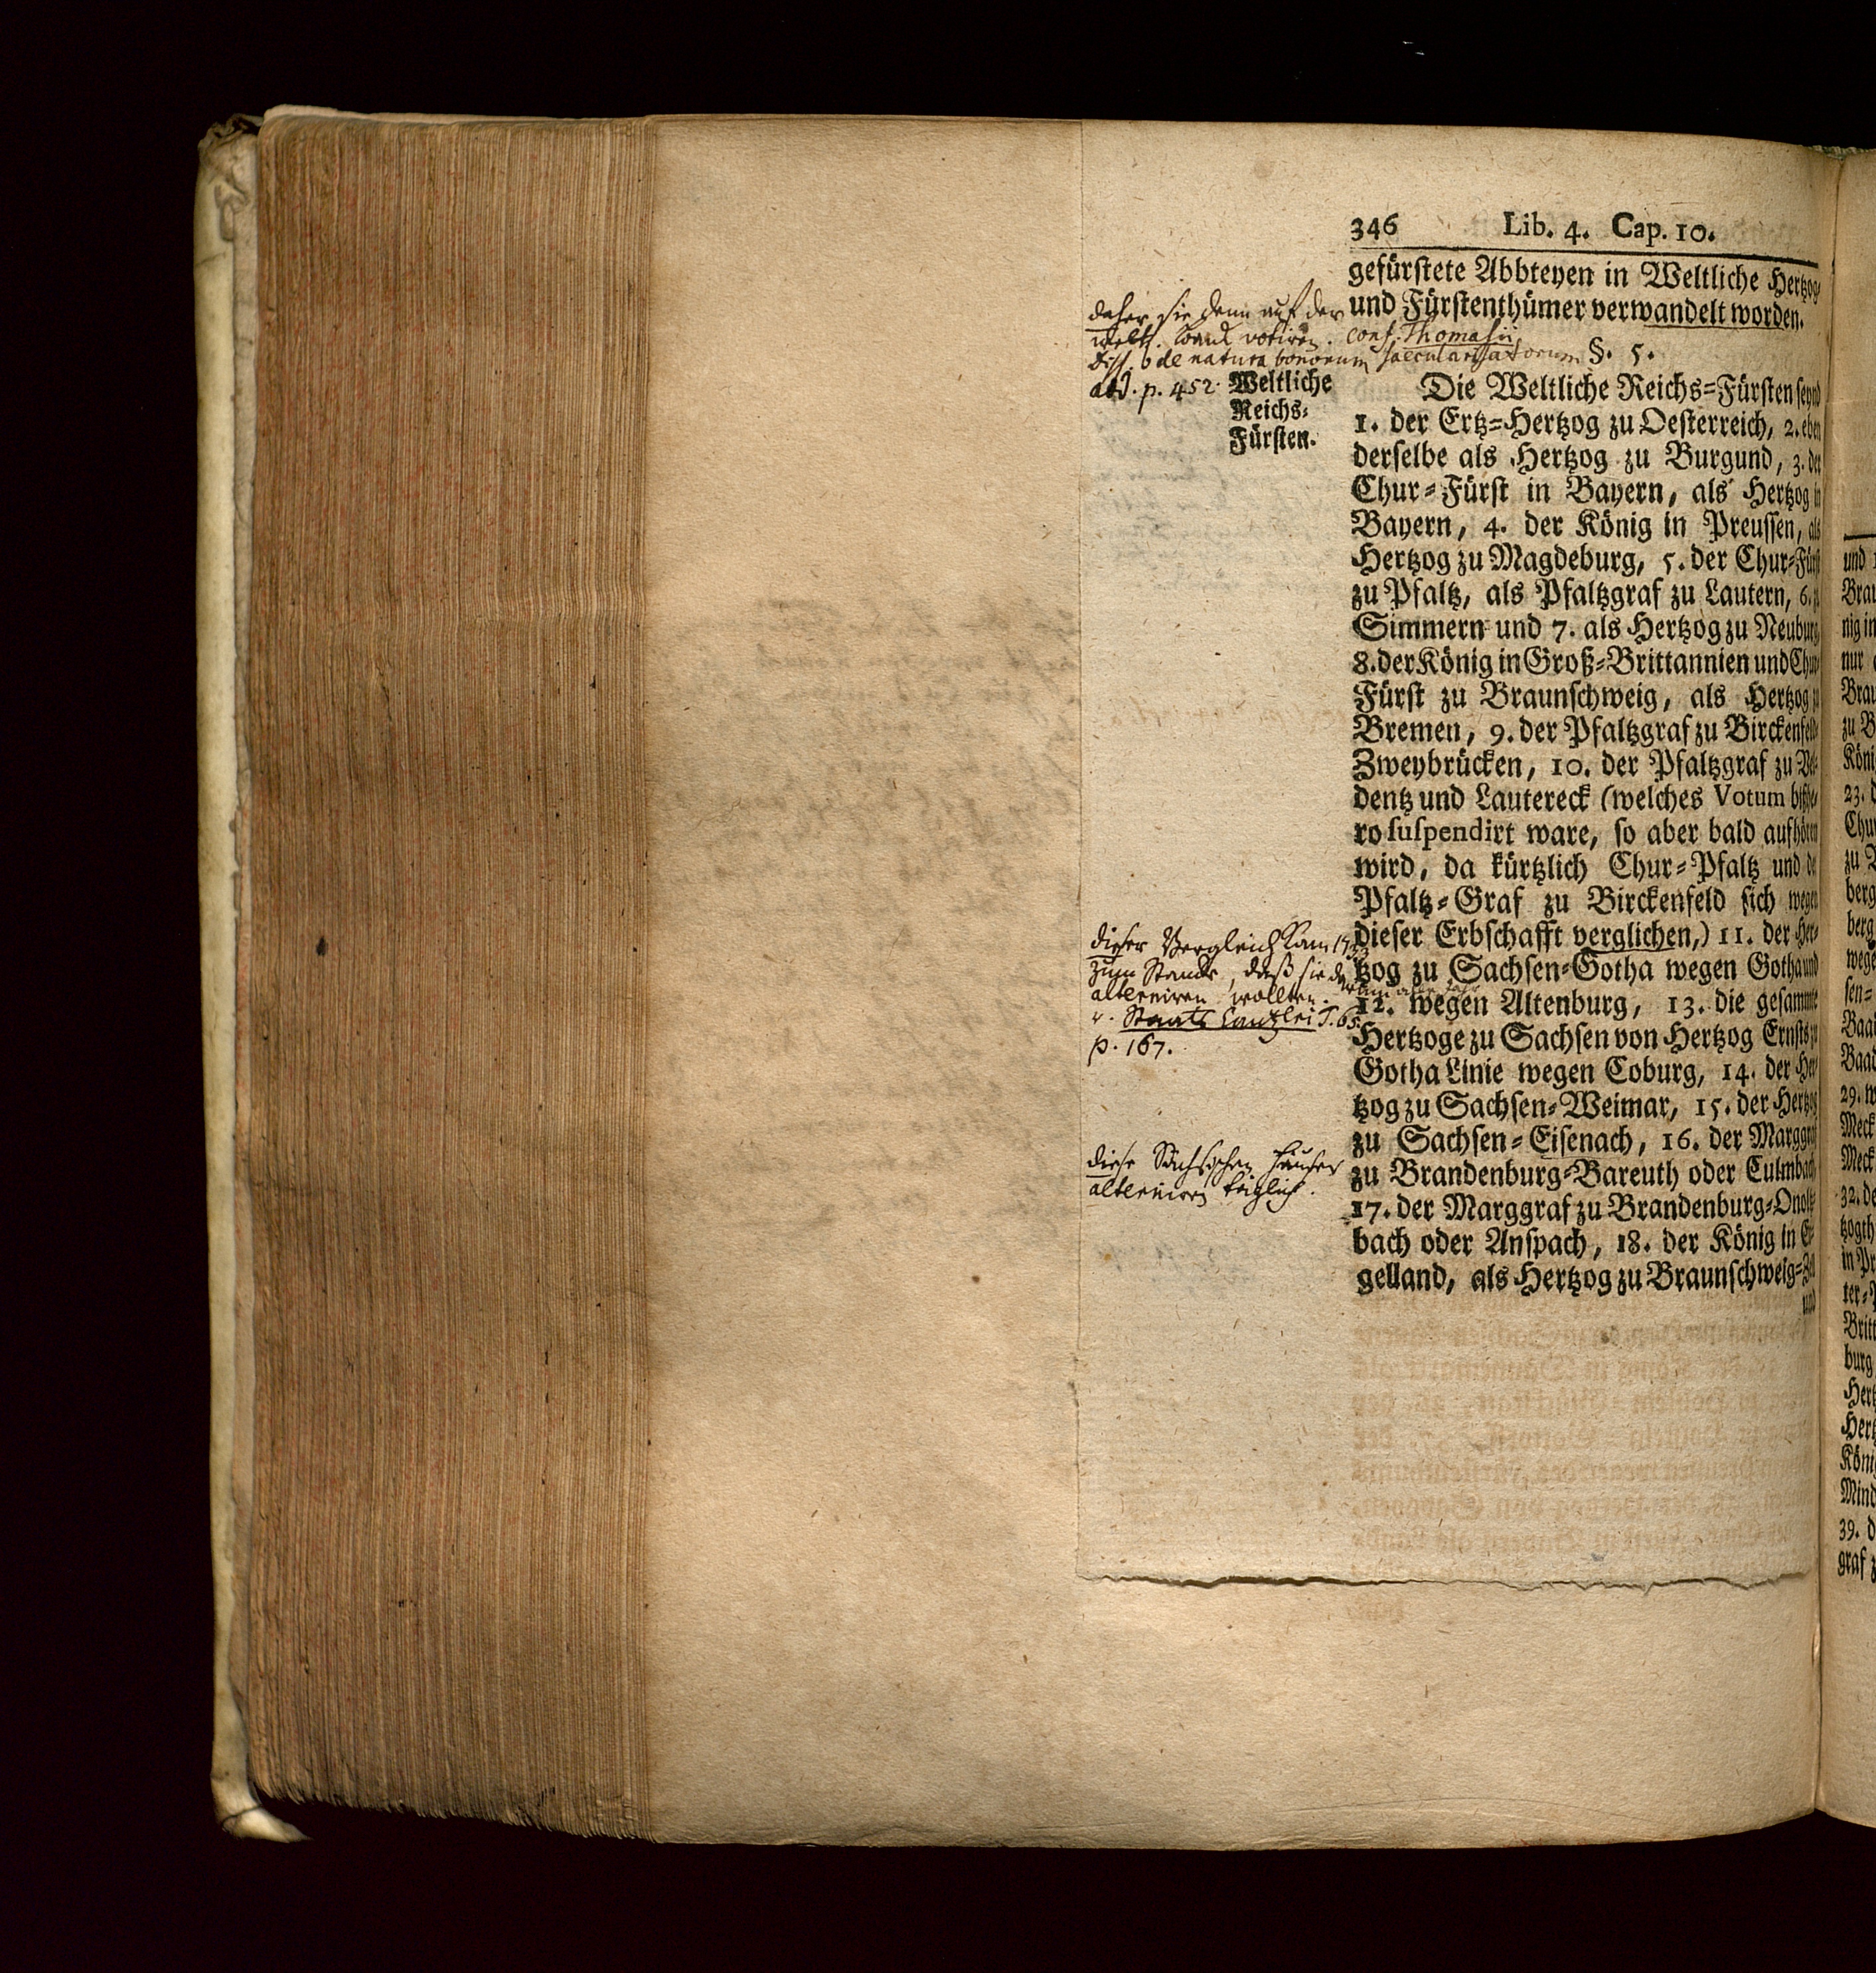 346 Lib. 4. Cap. 10.
gefürstete Abbteyen in Weltliche Hertzog-
und Fürstenthümer verwandelt worden.
daher sie denn auf der
weltl. Banck votiren. conf. Thomasii
Diss. de natura bonorum saecularisatorum
add. p. 452.
§. 5.
Weltliche
Reichs-
Fürsten.
Die Weltliche Reichs-Fürsten seynd
1. der Ertz-Hertzog zu Oesterreich, 2. eben
derselbe als Hertzog zu Burgund, 3. der
Chur-Fürst in Bayern, als Hertzog in
Bayern, 4. der König in Preussen, als
Hertzog zu Magdeburg, 5. der Chur-Fürst
zu Pfaltz, als Pfaltzgraf zu Lautern, 6. zu
Simmern und 7. als Hertzog zu Neuburg
8. der König in Groß-Brittannien und Chur-
Fürst zu Braunschweig, als Hertzog zu
Bremen, 9. der Pfaltzgraf zu Birckenfeld-
Zweybrücken, 10. der Pfaltzgraf zu Vel-
dentz und Lautereck (welches Votum bißhe-
ro suspendirt ware, so aber bald aufhören
wird, da kürtzlich Chur-Pfaltz und der
Pfaltz-Graf zu Birckenfeld sich wegen
dieser Erbschafft verglichen,) 11. der Her-
tzog zu Sachsen-Gotha wegen Gotha und
12. wegen Altenburg, 13. die gesammte
Hertzoge zu Sachsen von Hertzog Ernsts zu
Gotha Linie wegen Coburg, 14. der Her-
tzog zu Sachsen-Weimar, 15. der Hertzog
zu Sachsen-Eisenach, 16. der Marggraf
zu Brandenburg-Bareuth oder Culmbach
17. der Marggraf zu Brandenburg-Onoltz-
bach oder Anspach, 18. der König in En-
gelland, als Hertzog zu Braunschweig-Zell
und
dieser Vergleich kam
zum Stande, daß sie
alterniren wollten.
v. Staats Cantzlei T. 65.
p. 167.
diese Sächsischen Häuser
alterniren täglich.
und
Brau
nig in
nur
Brau
zu B
Köni
23. d
Chur
zu
berg
berg
wege
sen-
Baa
Baad
29. w
Meck
Meck
32. de
tzogth
in Pr
ter-
Britt
burg
Hert
Hert
Köni
Mind
39. d
graf z